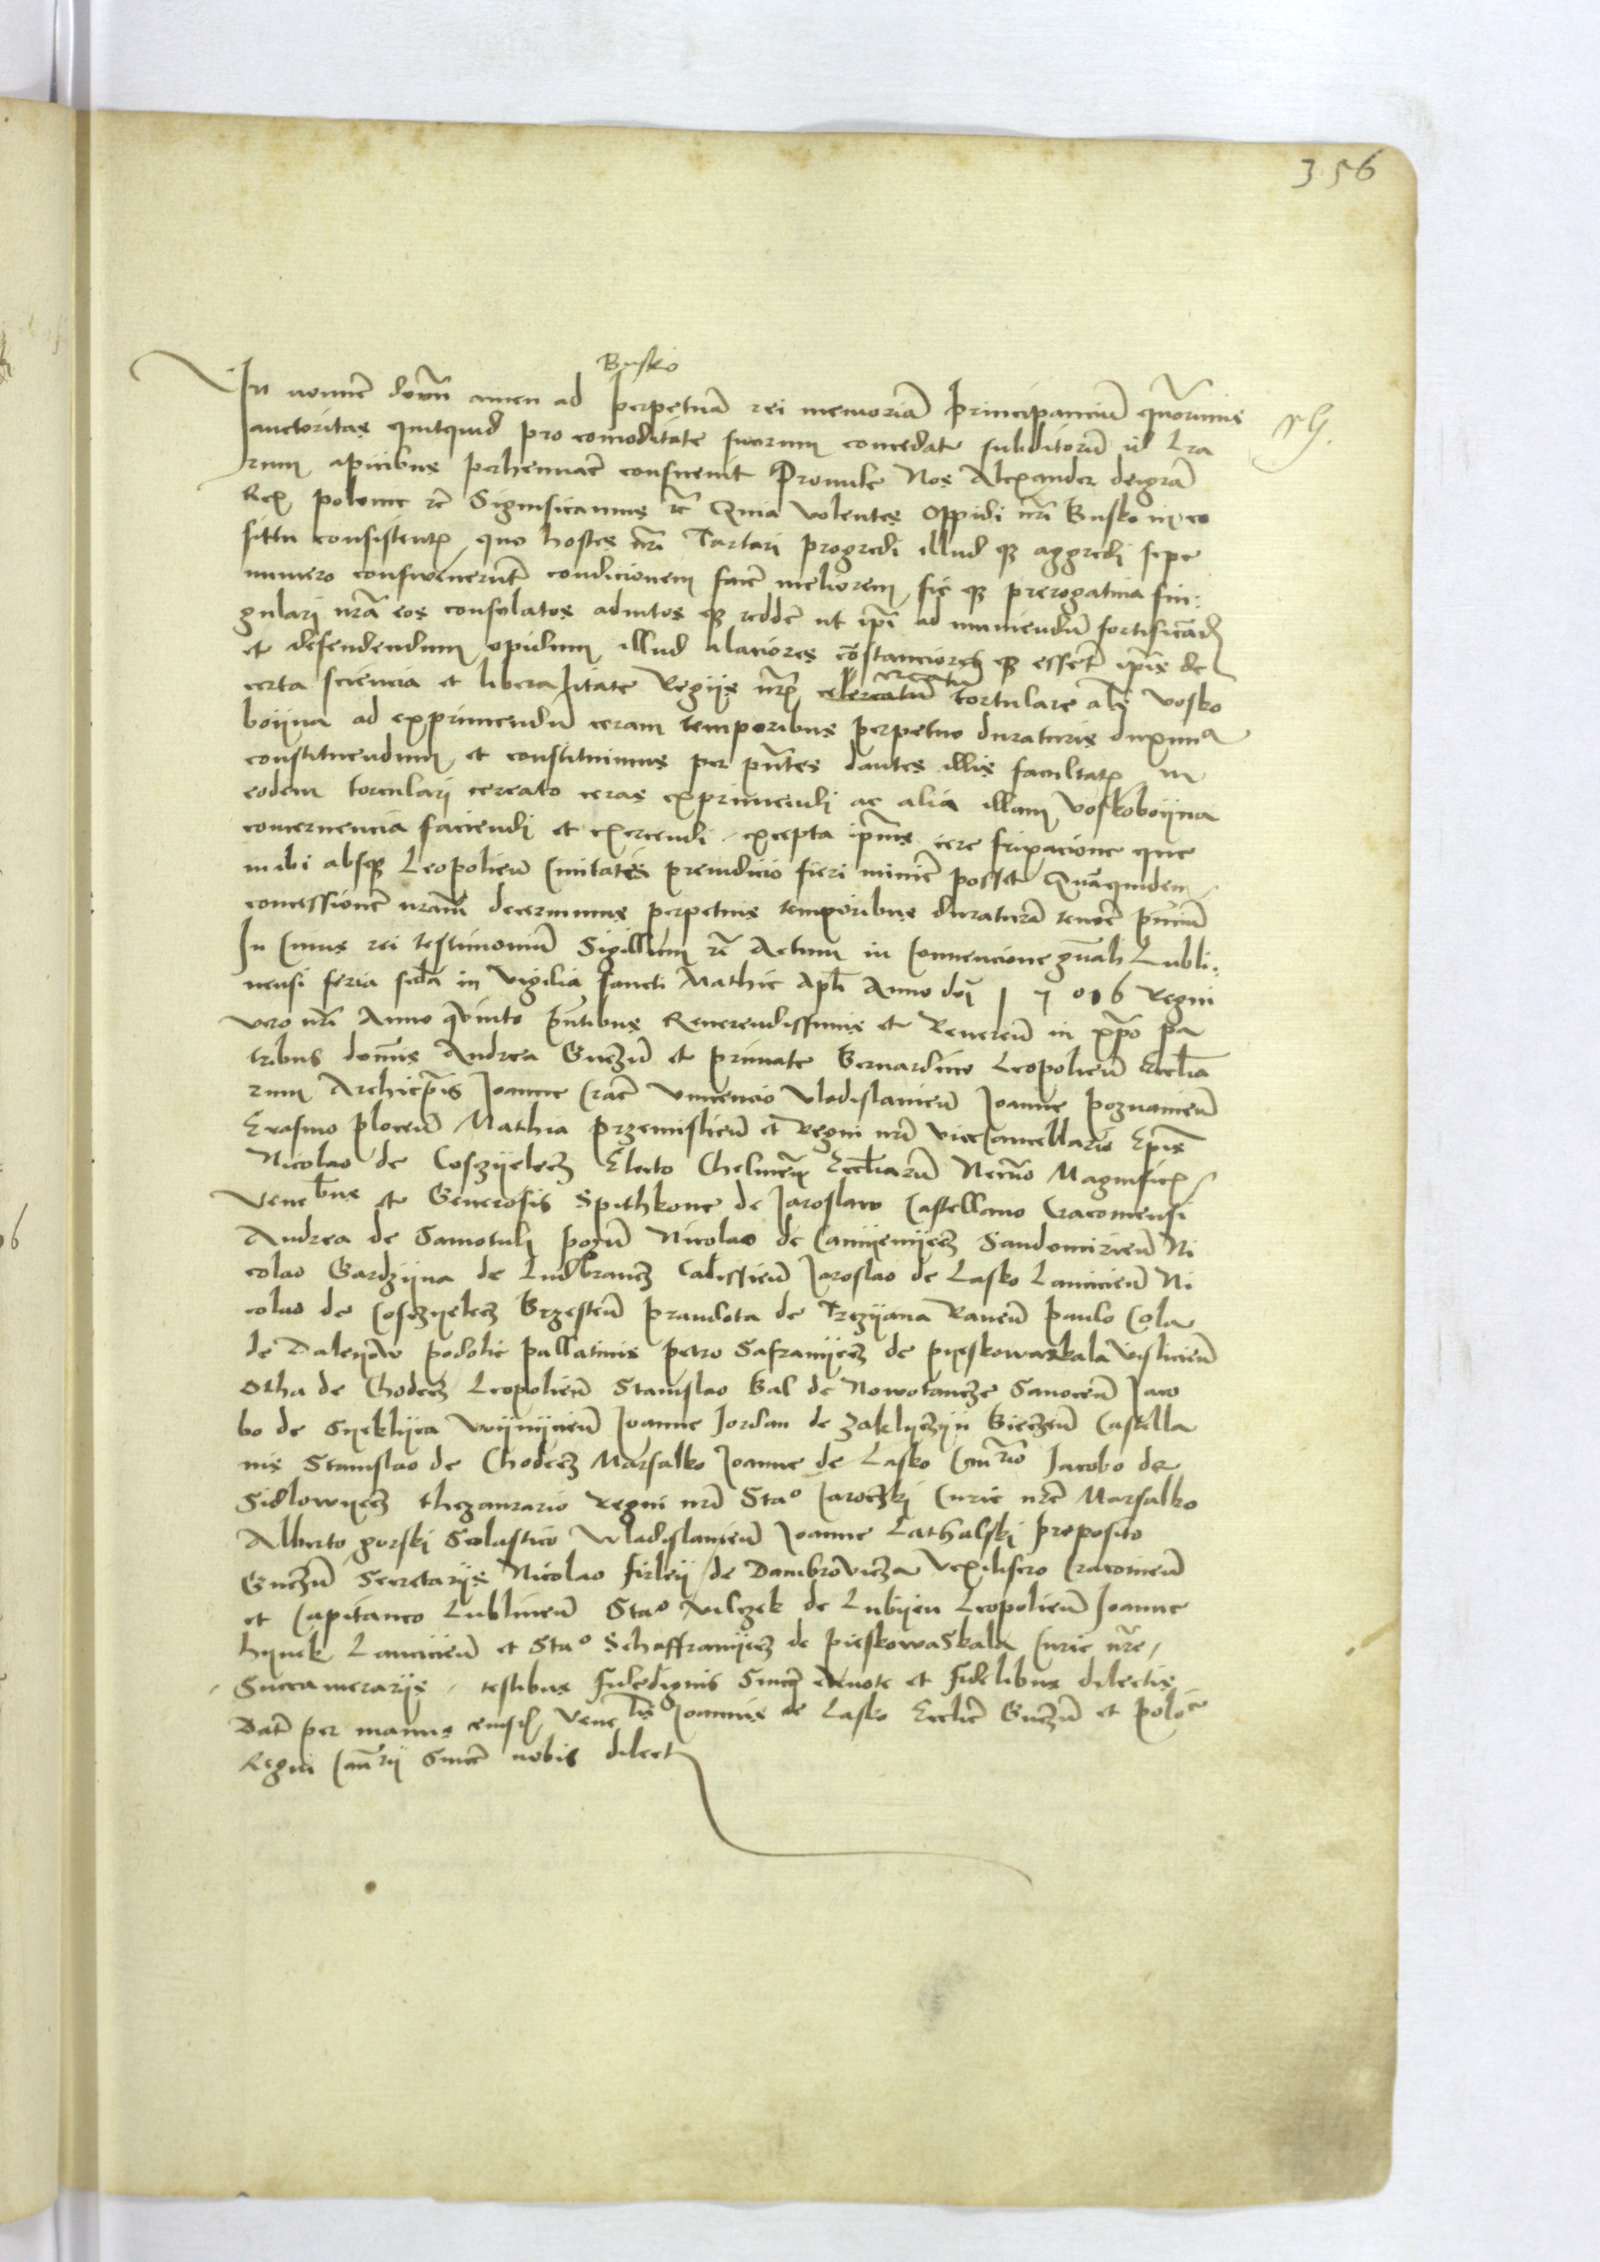 356
Busko
In nomine domi amen ad perpetua rei memoria principanciu
auctoritas quitquid pro comoditate suorum concedate subditoru id Lra
rum apicibus perhennare consuevit Proinde Nos Alexander deigra
Rex polonie rc Significamus rc Quia volentes oppidi nri Busko in eo
sittu consistentem quo hostes nri Tartari progredi illud qz aggredi sepe
numero consweverunt condicionem facere meliorem sic qz prerogativa sin:
gulari nra eos consolatos adiutos qz reddere ut ipi ad muniendu fortificand
et defendendum opidum illud alaciores constanciores qz essent ipis de
certa sciencia et liberalitate Regijs nris cereatu tortulare als Vosko
boijna ad exprimendu ceram temporibus perpetuo duraturis duximus
constituendum et constituimus per pntes dantes illis facultatem in
eodem torculari cereato ceras exprimendi ac alia illam voskoboijna
concernencia faciendi et exercendi excepta ipius cere frixacione que
inibi absqz Leopolien Civitatis preiudicio fieri minime posset Quamquidem
concessione nram decernimus perpetuis temporibus duratura tenore pnciu
In Cuius rei testimoniu Sigillum rc Actum in Convencione gnali Lubli:
nensi feria scda in vigilia sancti Mathie Apli Anno doi 1 5 0 6 Regni
vero nri Anno quinto pntibus Reverendissimis et Reveren in xpo pa
tribus domis Andrea Gnezn et primate Bernardino Leopolien Eccliа
rum Archiepis Joanne Crac Vincencio Vladislavien Joanne poznanien
Erasmo plocen Mathia przemislien et Regni nri vicecancellario Epis
Nicolao de Coszijelecz Electo Chelmen Eccliaru Necno Magnificis
Venebus et Generosis Spithkone de Jaroslaw Castellano Cracoviensi
Andrea de Samotuli pozn Nicolao de Camijenijecz Sandomirien Ni
colao Gardzijna de Ludbrancz Calissien Jaroslao de Lasko Lancicien Ni
colao de Coszijelecz Brzesten prandota de Trzijana Raven paulo Cola
de Daleijow podolie pallatinis petro Safranijecz de pijeskowaskala vislicien
Otha de Chodecz Leopolien Stanislao Kal de Nowotancze Sanocen Jaco
bo de Sijeklijca Wijnijcien Joanne Jordan de Zaklijczijn Biecen Castella
nis Stanislao de Chodecz Marsalko Joanne de Lasko Canrio Jacobo de
Sidlowijecz thezaurario Regni nri Stao Jaroczki Curie nre Marsalko
Alberto gorski Scolastico Wladislavien Joanne Lathalski preposito
Gnezn Secretarijs Nicolao Firleij de Dambrovicza Vexilifero Cracovien
et Capitaneo Lublinen Stao Vilczek de Lubijen Leopolien Joanne
hijnek Lancicien et Stao Schaffranijecz de pieskowaskala Curie nre
Succamerarijs testibus fidedignis Sincere devote et fidelibus dilectis
Dat per manus eiusd Venelis Joannis de Lasko Ecclie Gnezn et polo
Regni Canrij Sincere nobis dilect